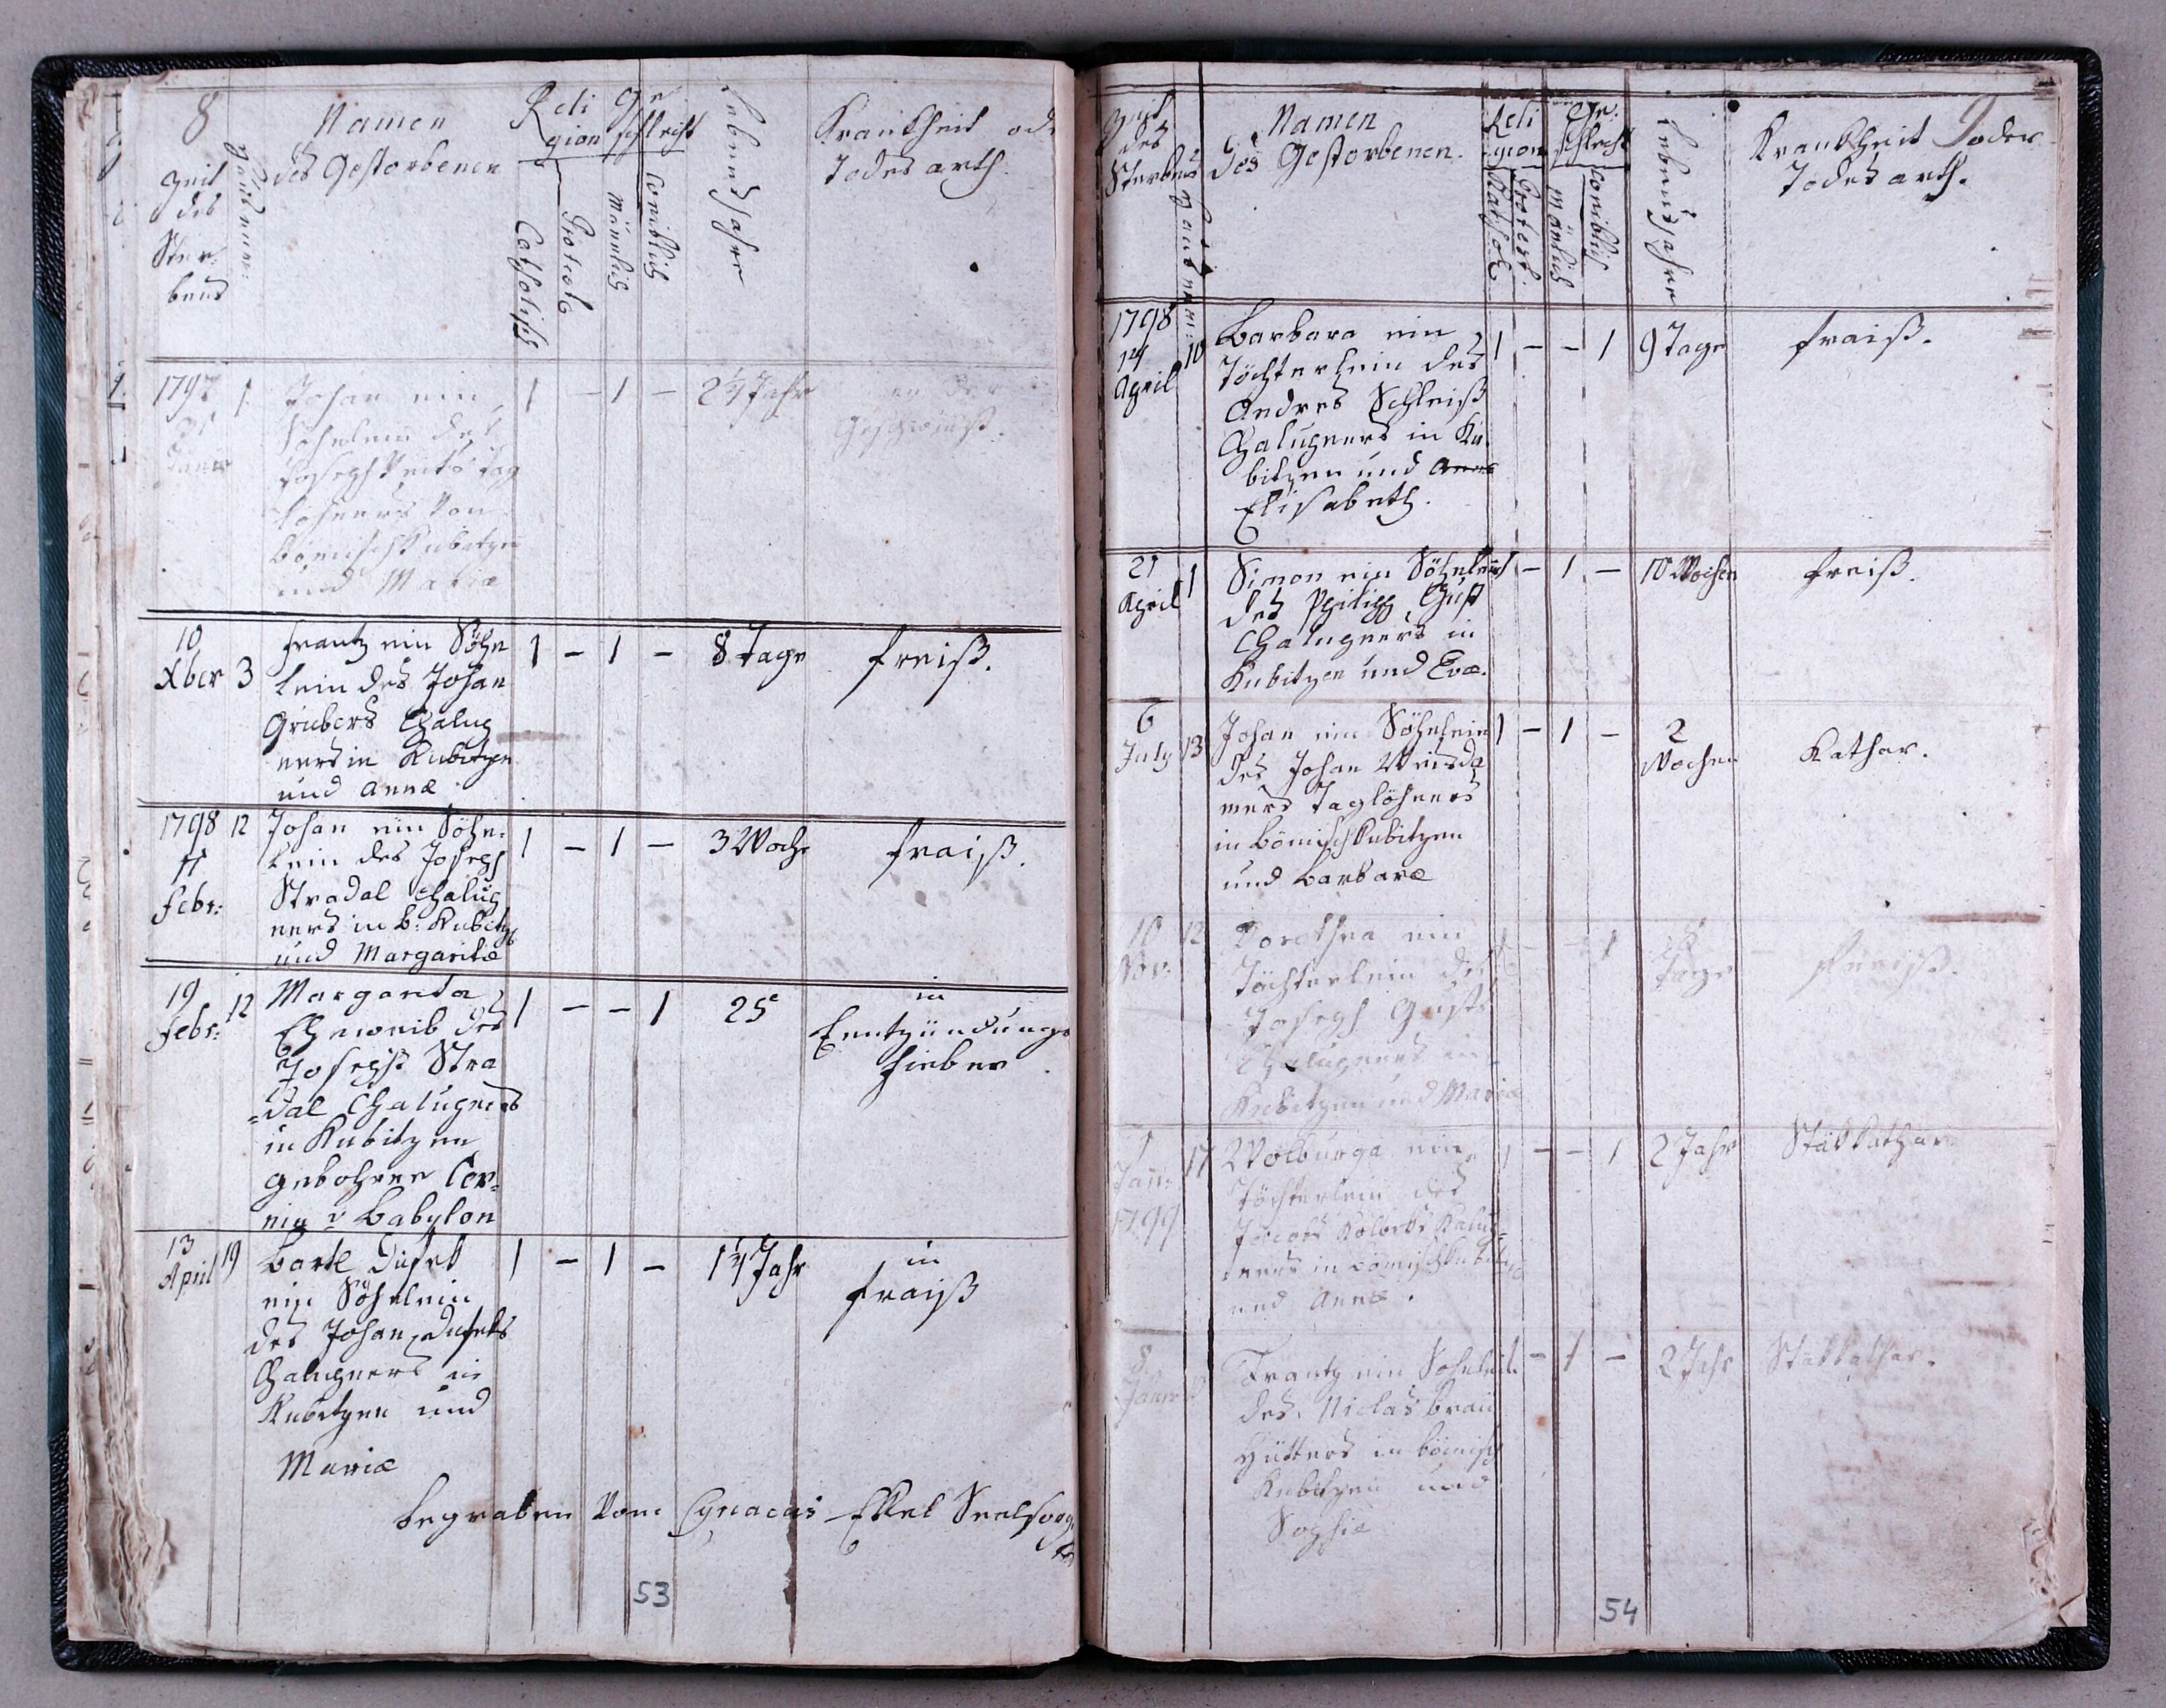 8
Zeit
des
Ster-
bens
Hausnum:
Namen
des Gestorbenen
Reli
gion
Catholisch
Protest
Ge
schlecht
männlich
weiblich
Lebensjahre
Krankheit oder
Todesarth.
1797
Janer
1
Johan ein
Söhnlein des
Joseph Veits Tag
löhners von
Bömischkubitzen
und Mariæ
1 – 1 –
2¼ Jahr
an der
Geschwulst.
10
Xber
3
Frantz ein Söhn
lein des Johan
Grubers Chalup
ners in Kubitzen
und Annæ
1 – 1 –
8 Tage
freiß.
1798
11
Febr:
12
Johan ein Söhn-
lein des Joseph
Stradal Chalup
ners in b: Kubitze
und Margaritæ
1 – 1 –
3 Woch
fraiß.
19
Febr:
12
Margarita
Eheweib des
Joseph Stra
=dal Chalupners
in Kubitzen
gebohrne Cer=
nin v Babylon
1 – – 1
25
in
Enntzündungs
fieber.
13
April
19
Bartl Dufek
ein Söhnlein
des Johan Dufeks
Chalupners in
Kubitzen und
Mariæ
1 – 1 –
1¼ Jahr
in
fraiß
begraben vom Cyriacus Ekel Seelsorger
53
Zeit
des
Sterbens
Hausnum:
Namen
des Gestorbenen.
Reli
gion
Kathol
Protest.
Ge:
schlecht
mänlich
weiblich
Lebensjahre
Krankheit oder
Todesarth.
1798
14
April
10
Barbara ein
Töchterlein des
Andres Schleiß
Chalupners in Ku
bitzen und Annæ
Elisabeth.
1 – – 1
9 Tage
fraiß.
21
April
1
Simon ein Söhnlein
des Philipp Gust
Chalupners in
Kubitzen und Evæ.
1 – 1 –
10 Wochen
freiß.
6
July
13
Johan ein Söhnlein
des Johan Weisda
mers Taglöhners
in bömischkubitzen
und barbaræ
1 – 1 –
2
Wochen
Kathar.
10
Nov:
12
Dorothea ein
Töchterlein des
Joseph Gusts
Chalupners in
Kubitzen und Mariæ
1 – – 1
Tage
freiß.
1
Jan:
1799
17
Wolburga ein
Töchterlein des
Jacobs Kolbeks Kalup=
ners in bömischkubitzen
und Annæ.
1 – – 1
2 Jahr
Stäkkathar
8
Janer
Frantz ein Söhnlein
des Niclas Brau
Hütters in bömisch
Kubitzen und
Sophiæ
– 1 –
2 Jahr
Stäkkathar.
54